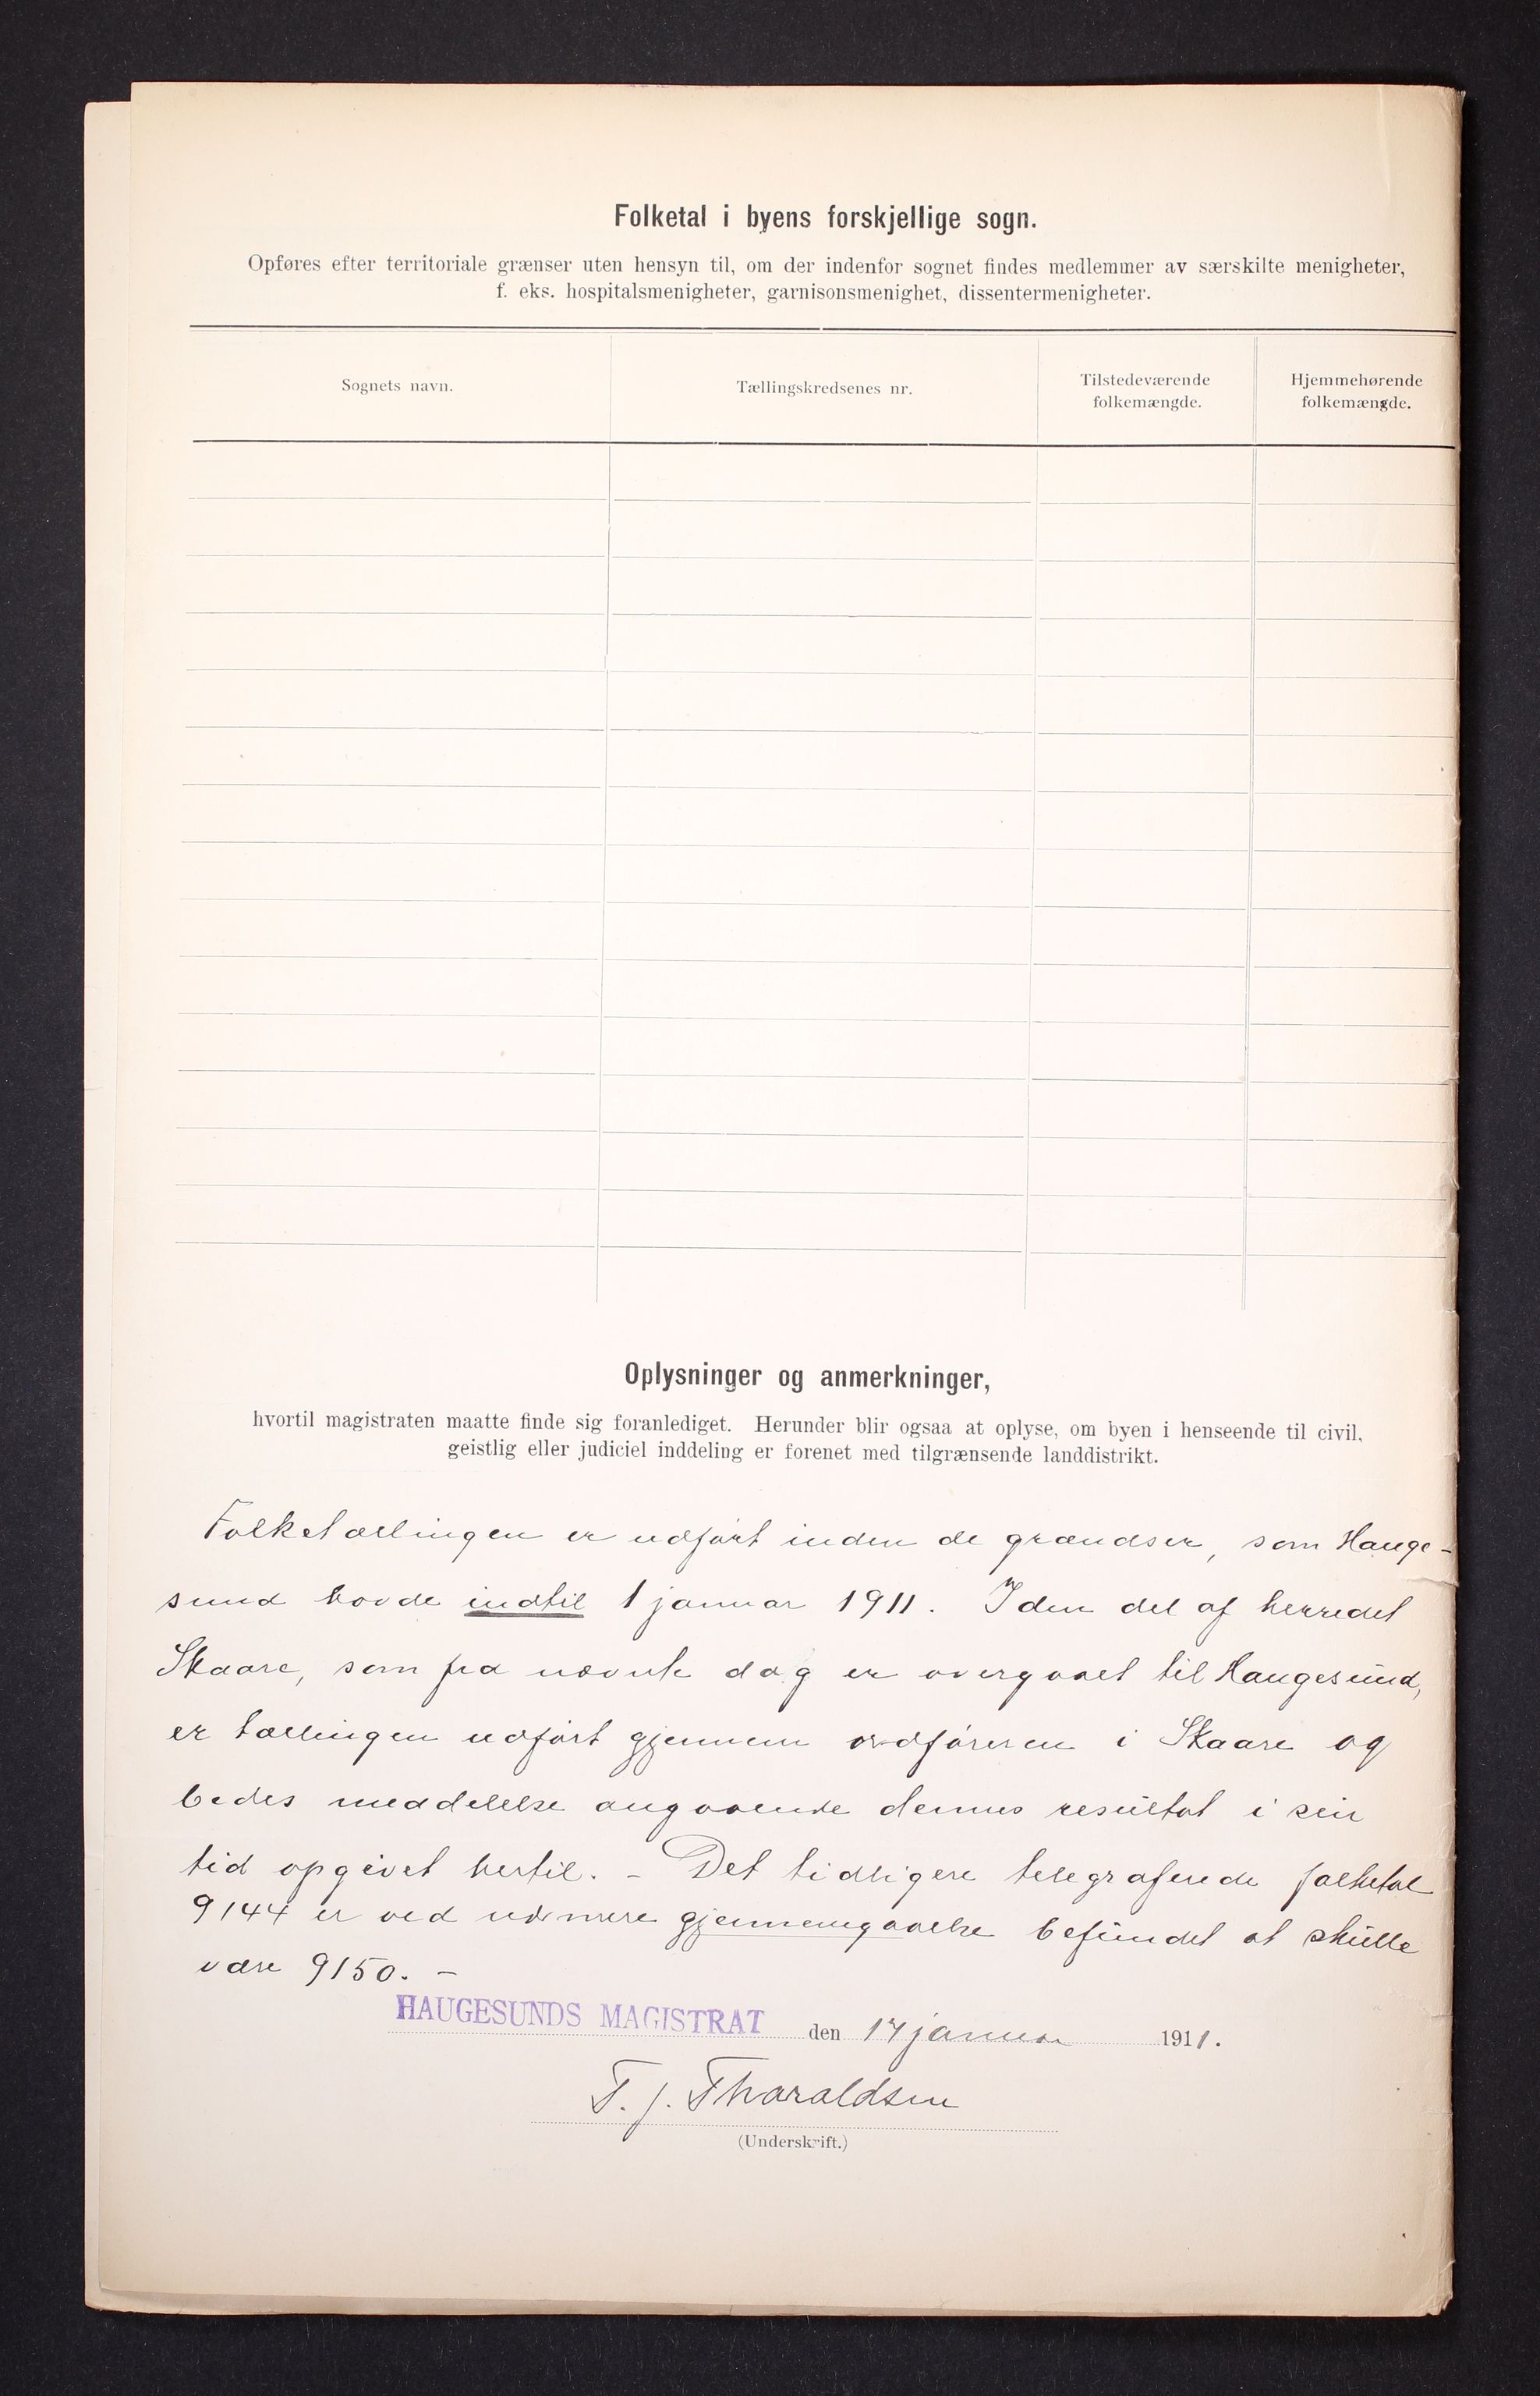 Folketal i byens forskjellige sogn.
Opføres efter territoriale grænser uten hensyn til, om der indenfor sognet findes medlemmer av særskilte menigheter,
f. eks. hospitalsmenigheter, garnisonsmenighet, dissentermenigheter.
Sognets navn.
Tællingskredsenes nr.
Tilstedeværende
folkemængde.
Hjemmehørende
folkemængde.
Oplysninger og anmerkninger,
hvortil magistraten maatte finde sig foranlediget. Herunder blir ogsaa at oplyse, om byen i henseende til civil,
geistlig eller judiciel inddeling er forenet med tilgrænsende landdistrikt.
Folketællingen er udført inden de grændser, som Hauge-
sund havde indtil 1 januar 1911. I den del af herredet
Skaare, som fra nævnte dag er overgaaet til Haugesund,
er tællingen udført gjennem ordføreren i Skaare og
bedes meddelelse angaaende dennes resultat i sin
tid opgivet hertil. - Det tidligere telegraferede folketal
9144 er ved nærmere gjennemgaaelse befundet at skulle
være 9150. -
HAUGESUNDS MAGISTRAT den 14 januar 1911.
T. J. Tharaldsen
(Underskrift.)